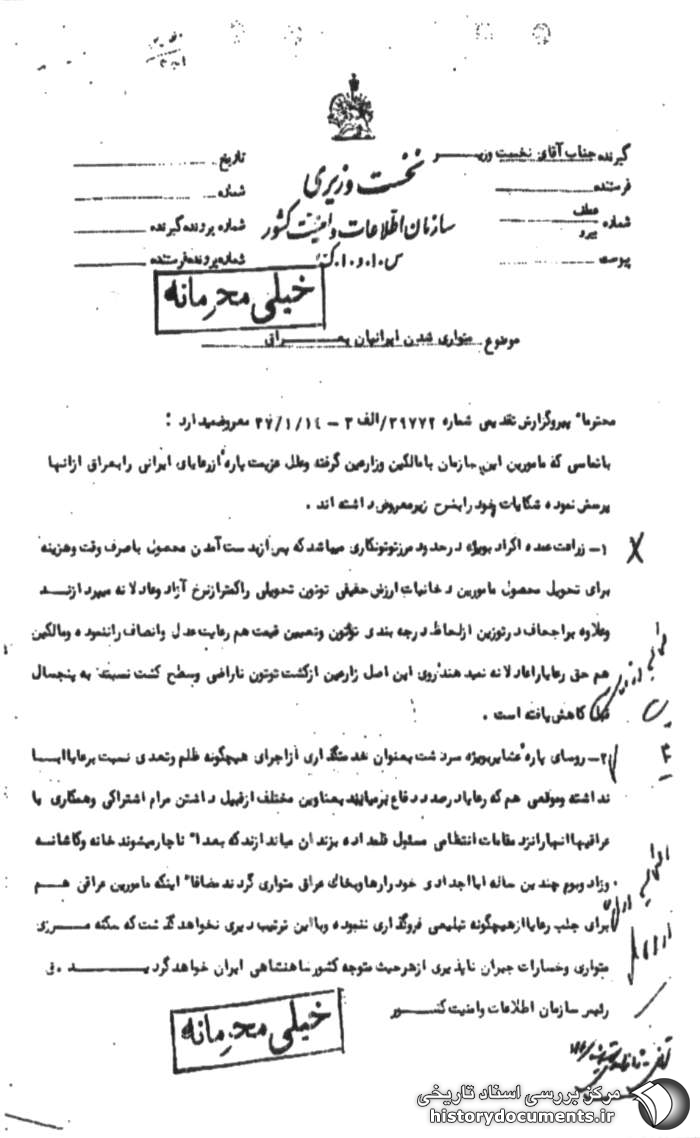 نخست وزیری
سازمان اطلاعات و امنیت کشور
س.ا.و.ا.ک
گیرنده جناب آقای نخست وزیـــر
فرستنده
شماره عطف
پیرو
پیوست
تاریخ
شماره
شماره پرونده گیرنده
شماره پرونده فرستنده
خیلی محرمانه
موضوع متواری شدن ایرانیان بعـــراق
محترما" پیرو گزارش تقدیمی شماره ۳۹۷۷۲/الف ۳ - ۳۷/۱/۱۴ معروضمیدارد :
باتماسی که مامورین این سازمان بامالکین وزارعین گرفته وعلل عزیمت پاره ازرعایای ایرانی رابعراق ازانها
پرسش نموده شکایات خود رابشرح زیرمعروض داشته اند .
۱- زراعت عمده اکراد بویژه درحدود مرزتوتونکاری میباشدکه پس ازبدست آمدن محصول باصرف وقت وهزینه
برای تحویل محصول مامورین دخانیات ارزش حقیقی توتون تحویلی راکمترازنرخ آزاد وعادلانه میبردازنــد
وعلاوه براجحاف درتوزین ازلحاظ درجه بندی توتون وتعیین قیمت هم رعایت عدل وانصاف راننموده ومالکین
هم حق رعایاراعادلانه نمیدهندروی این اصل زارعین ازکشت توتون ناراضی وسطح کشت نسبت به پنجسال
قبل کاهش یافته است .
۲- روسای پاره عشایربویژه سردشت بعنوان خدمتگذاری ازاجرای هیچگونه ظلم وتعدی نسبت برعایاابــا
نداشته وموقعی هم که رعایادرصدد دفاع برمیایند بعناوین مختلف ازقبیل داشتن مرام اشتراکی وهمکاری با
عراقیهاانهارانزد مقامات انتظامی مسئول قلمداده بزندان میاندازندکه بعدا" ناچارمیشوند خانه وکاشانـه
وزاد وبوم چندین ساله اباا جدادی خودرارهاوبخاک عراق متواری گردند مضافا" اینکه مامورین عراقی هـــم
برای جلب رعایاازهیچگونه تبلیغی فروگذاری ننموده وبااین ترتیب دیری نخواهدگذشت که سکنه مـــرزی
متواری وخسارات جبران ناپذیری ازهرحیث متوجه کشورشاهنشاهی ایران خواهدگردیـــــد .
رئیس سازمان اطلاعات وامنیت کشـــور
خیلی محرمانه
مرکز بررسی اسناد تاریخی
historydocuments.ir